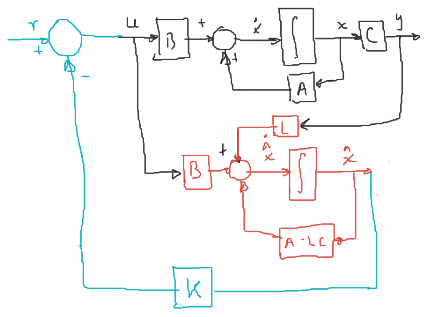 r u B + ẋ ∫ x C y
+ + A
- L
+ x̂̇ x̂
B ∫
A - LC
K